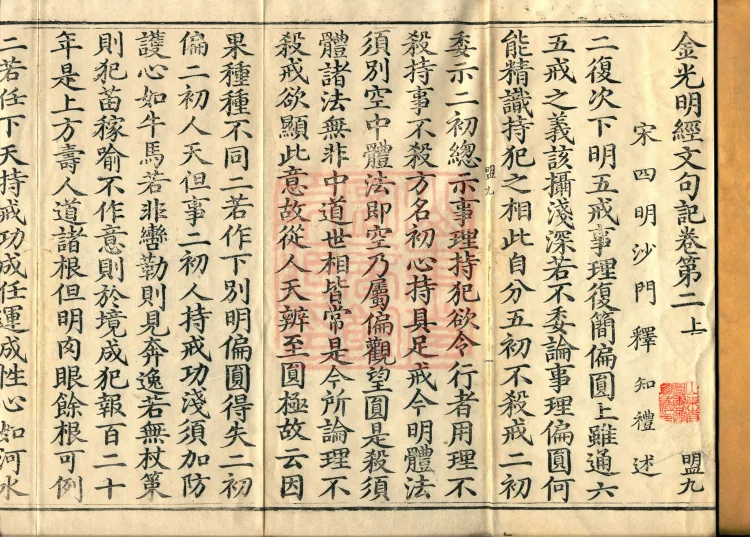 金光明經文句記卷第二上
盟九
宋四明沙門釋知禮述
二復次下明五戒事理復簡偏圓上雖通六
五戒之義該攝淺深若不委論事理偏圓何
能精識持犯之相此自分五初不殺戒二初
盟九
委示二初總示事理持犯欲令行者用理不
殺持事不殺方名初心持具足戒今明體法
須別空中體法即空乃屬偏觀望圓是殺須
體諸法無非中道世相皆常是今所論理不
殺戒欲顯此意故從人天辨至圓極故云因
果種種不同二若作下別明偏圓得失二初
偏二初人天但事二初人持戒功淺須加防
護心如牛馬若非轡勒則見奔逸若無杖策
則犯苗稼喻不作意則於境成犯報百二十
年是上方壽人道諸根但明肉眼餘根可例
二若任下天持戒功成任運成性心如河水